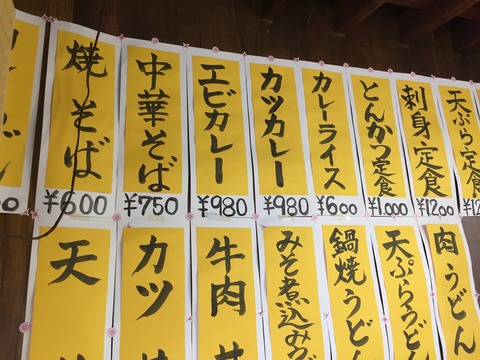 焼そば
¥600
中華そば
¥750
エビカレー
¥980
カツカレー
¥980
カレーライス
¥600
とんかつ定食
¥1.000
刺身定食
¥1200
天ぷら定食
天
カツ
牛肉
みそ煮込み
鍋焼うどん
天ぷらうどん
肉うどん